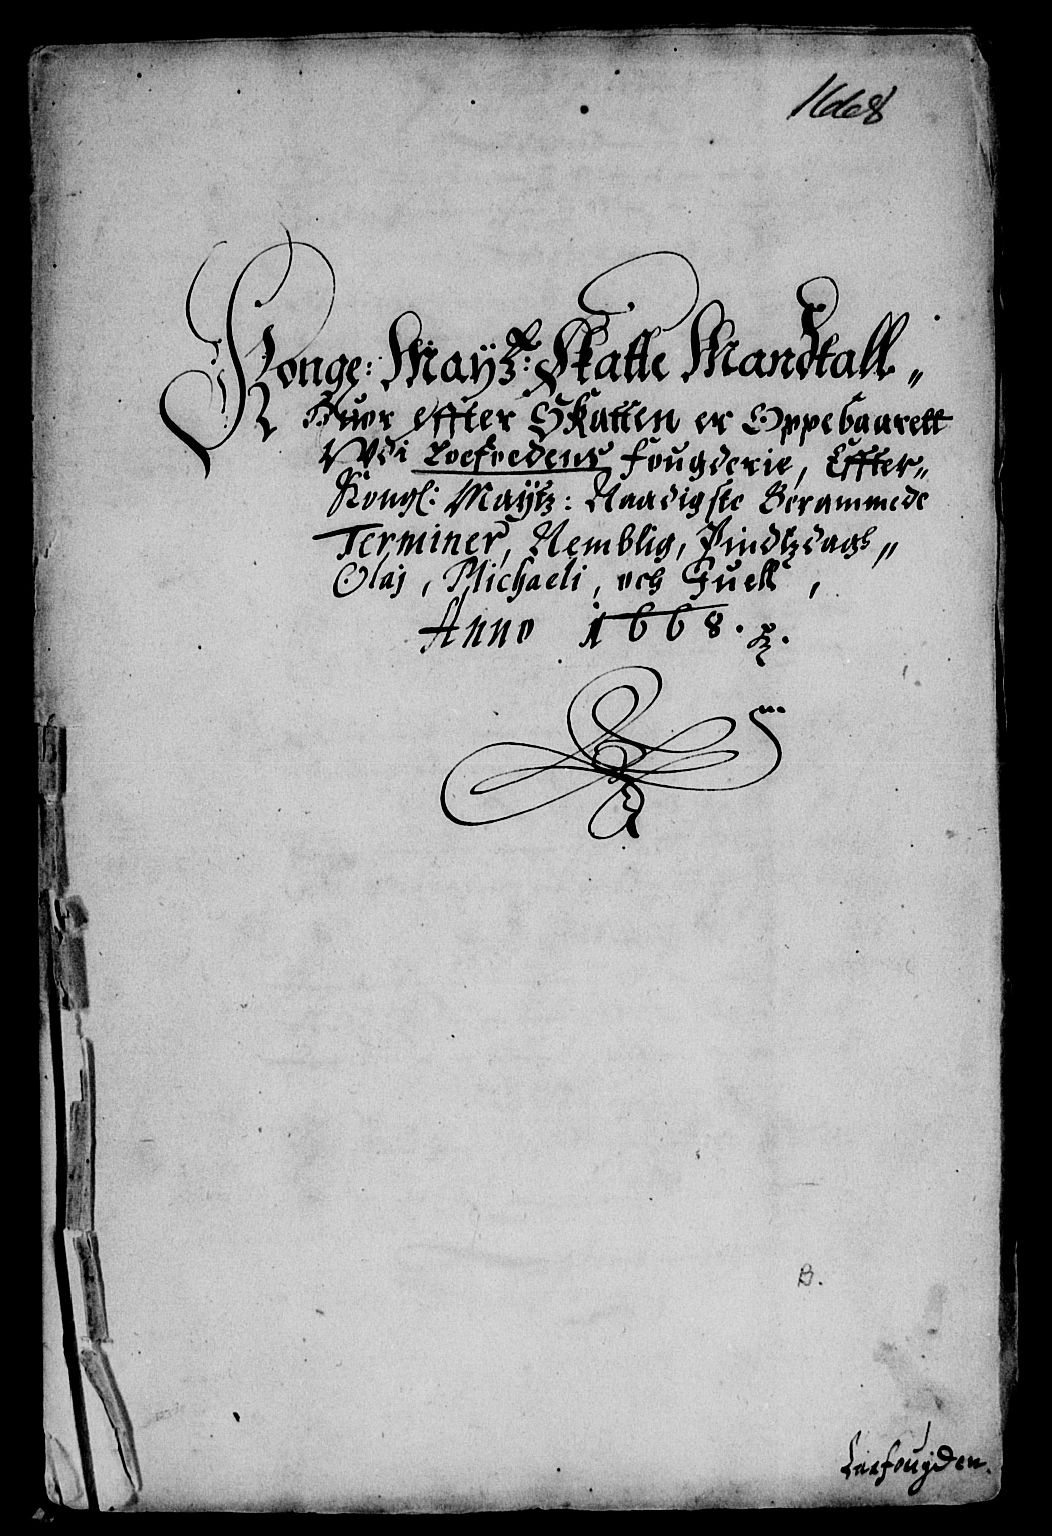 1668
Konge: Maytz: Skatte Mandtall„
Huor effter Skatten er Oppebaarett
Vdi Loefoedens fougderie, Effter„
Kongl: Maÿtz: Naadigste Berammede
Terminer, Nemblig, Pindtzdags„
Olaj, Michaeli, och Juell,
Anno 1668.
B.
Loefougden.